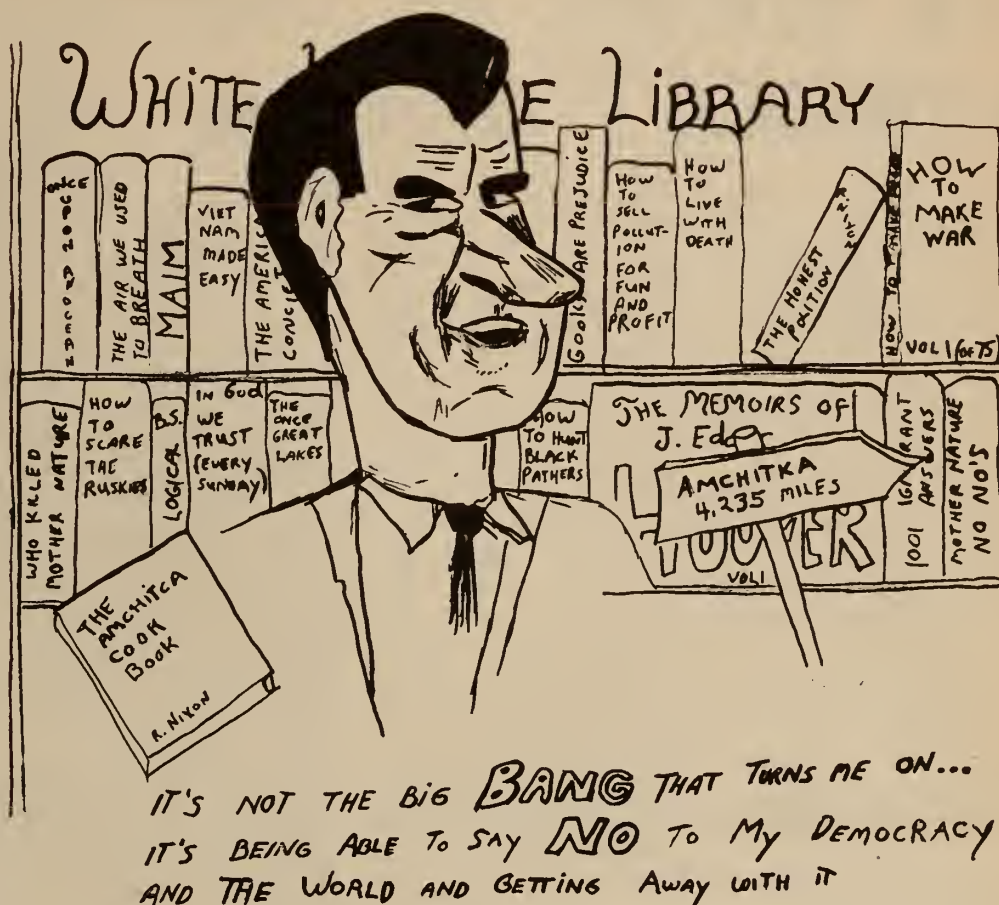 WHITE E LIBRARY
ONCE
THE AIR WE USED
TO BREATH
MAIM
VIET
NAM
MADE
EASY
THE AMERIC
CONCIET
GOOKS ARE PREJUDICE
HOW
TO
SELL
POLLUT-
ION
FOR
FUN
AND
PROFIT
HOW
TO
LIVE
WITH
DEATH
THE HONEST
POLITION
HOW TO
HOW
TO
MAKE
WAR
VOL 1 (OF 75)
WHO KILLED
MOTHER NATURE
HOW
TO
SCARE
THE
RUSKIES
B.S.
LOGICAL
IN GOD
WE
TRUST
(EVERY
SUNDAY)
THE
ONCE
GREAT
LAKES
HOW
TO HUNT
BLACK
PATHERS
THE MEMOIRS OF
J. EDGER
HOOVER
VOL 1
AMCHITKA
4,235 MILES
1001 IGNORANT
ANSWERS
MOTHER NATURE
NO NO'S
THE
AMCHITCA
COOK
BOOK
R. NIXON
IT'S NOT THE BIG BANG THAT TURNS ME ON...
IT'S BEING ABLE TO SAY NO TO MY DEMOCRACY
AND THE WORLD AND GETTING AWAY WITH IT